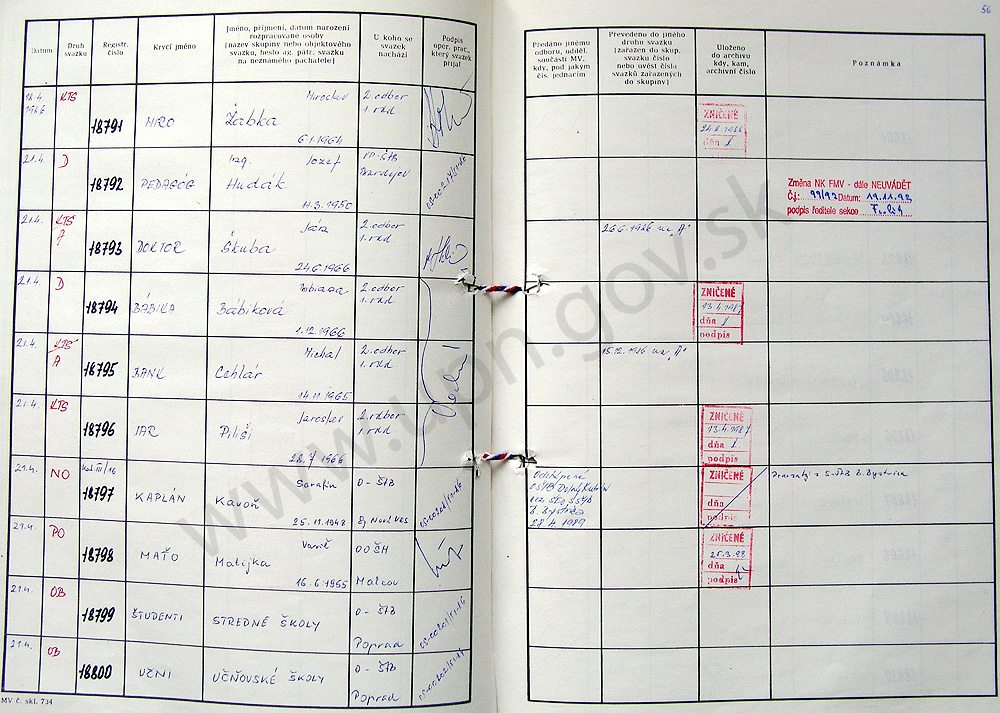 56
Datum
Druh
svazku
Registr.
číslo
Krycí jméno
Jméno, příjmení, datum narození
rozpracované osoby
(název skupiny nebo objektového
svazku, heslo ag. pátr. svazku
na neznámého pachatele)
U koho se
svazek
nachází
Podpis
oper. prac.,
který svazek
přijal
Předáno jinému
odboru, odděl.
součásti MV,
kdy, pod jakým
čís. jednacím
Převedeno do jiného
druhu svazku
(zařazen do skup.
svazku číslo
nebo uvést čísla
svazků zařazených
do skupiny)
Uloženo
do archivu
kdy, kam,
archivní číslo
Poznámka
18.4.
1986
KTS
18791
MIRO
Miroslav
Žabka
6.1.1964
2. odbor
1. odd.
ZNIČENÉ
dňa
21.4.
D
18792
PEDAGÓG
Ing. Jozef
Hudák
11.3.1950
Bardejov
Změna NK FMV - dále NEUVÁDĚT
Č.j.: 99/92 Datum: 19.11.92
podpis ředitele sekce
21.4.
KTS
A
18793
DOKTOR
Škuba
24.6.1966
2. odbor
1. odd.
26.6.1986 na "A"
21.4.
D
18794
BÁBIKA
Bábiková
1.12.1966
2. odbor
1. odd.
ZNIČENÉ
13.4.1987
dňa
podpis
21.4.
KTS
A
18795
BANK
Michal
Cehlár
14.11.1965
2. odbor
1. odd.
15.12.1986 na "A"
21.4.
KTS
18796
JAR
Jaroslav
Piliši
28.7.1966
2. odbor
1. odd.
ZNIČENÉ
13.4.1987
dňa
podpis
21.4.
NO
18797
KAPLÁN
Serafin
Kavoň
25.11.1948
O-ŠTB
Sp. Nová Ves
Odstúpené
OŠTB Dolný Kubín
B. Bystrica
28.4.1989
ZNIČENÉ
dňa
podpis
21.4.
PO
18798
MAŤO
Matijka
16.6.1955
OOŠH
Malcov
ZNIČENÉ
dňa
podpis
21.4.
OB
18799
ŠTUDENTI
STREDNÉ ŠKOLY
O-ŠTB
Poprad
21.4.
OB
18800
UČNI
UČŇOVSKÉ ŠKOLY
O-ŠTB
Poprad
MV č. skl. 734
www.upn.gov.sk